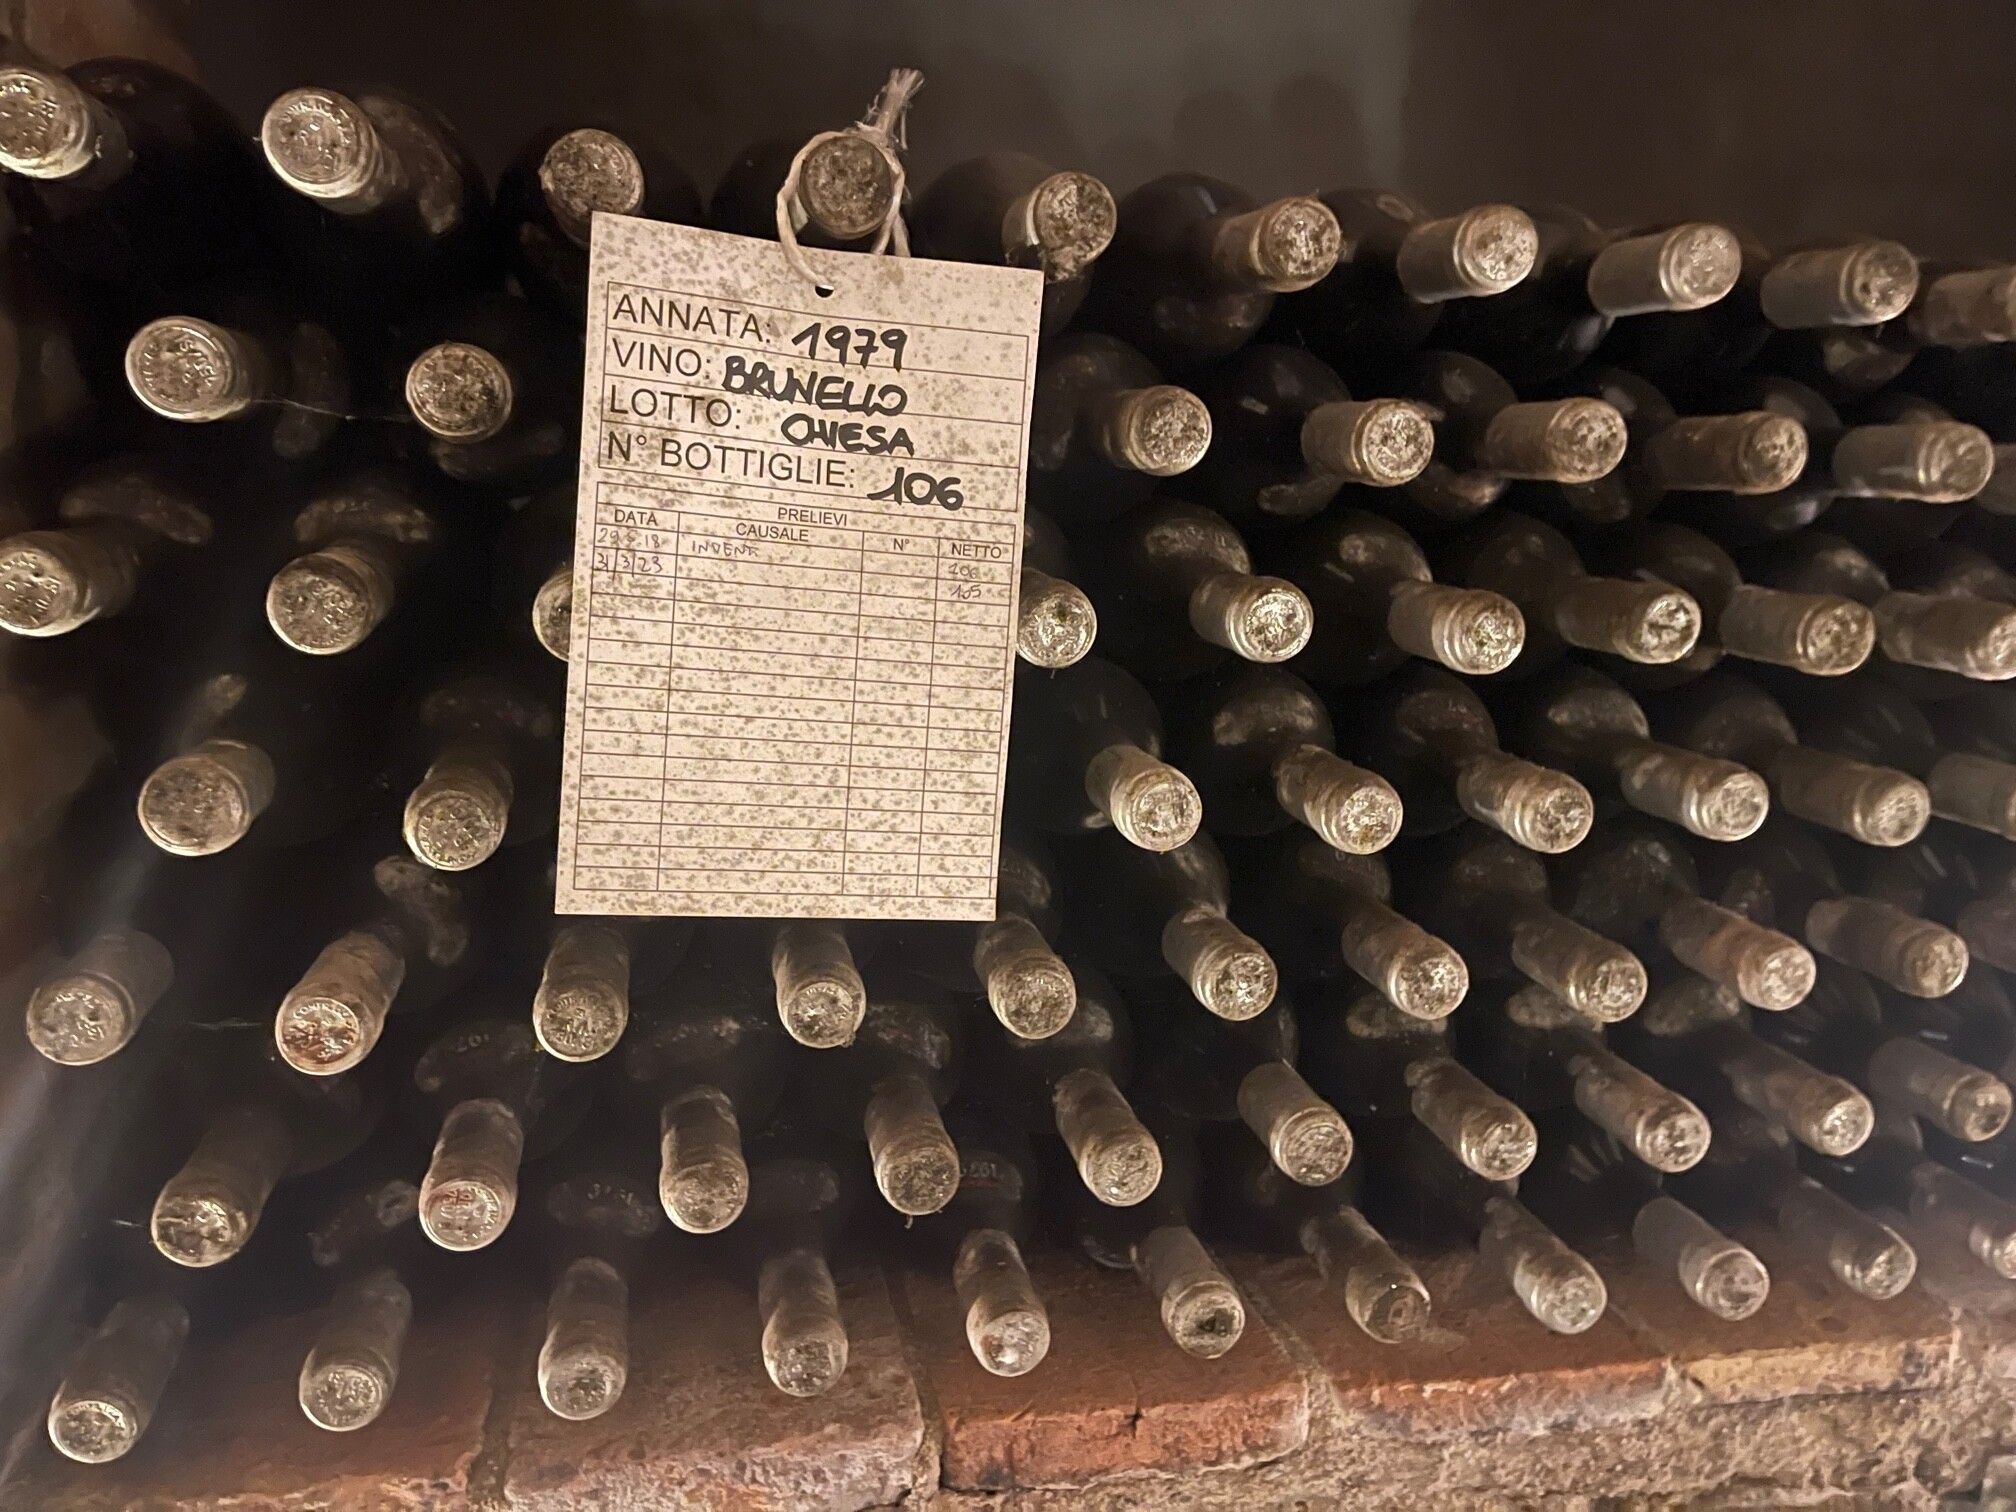 ANNATA: 1979
VINO: BRUNELLO
LOTTO: CHIESA
N° BOTTIGLIE: 106
PRELIEVI
DATA CAUSALE N° NETTO
18 INVENT 106
3/3/23 105